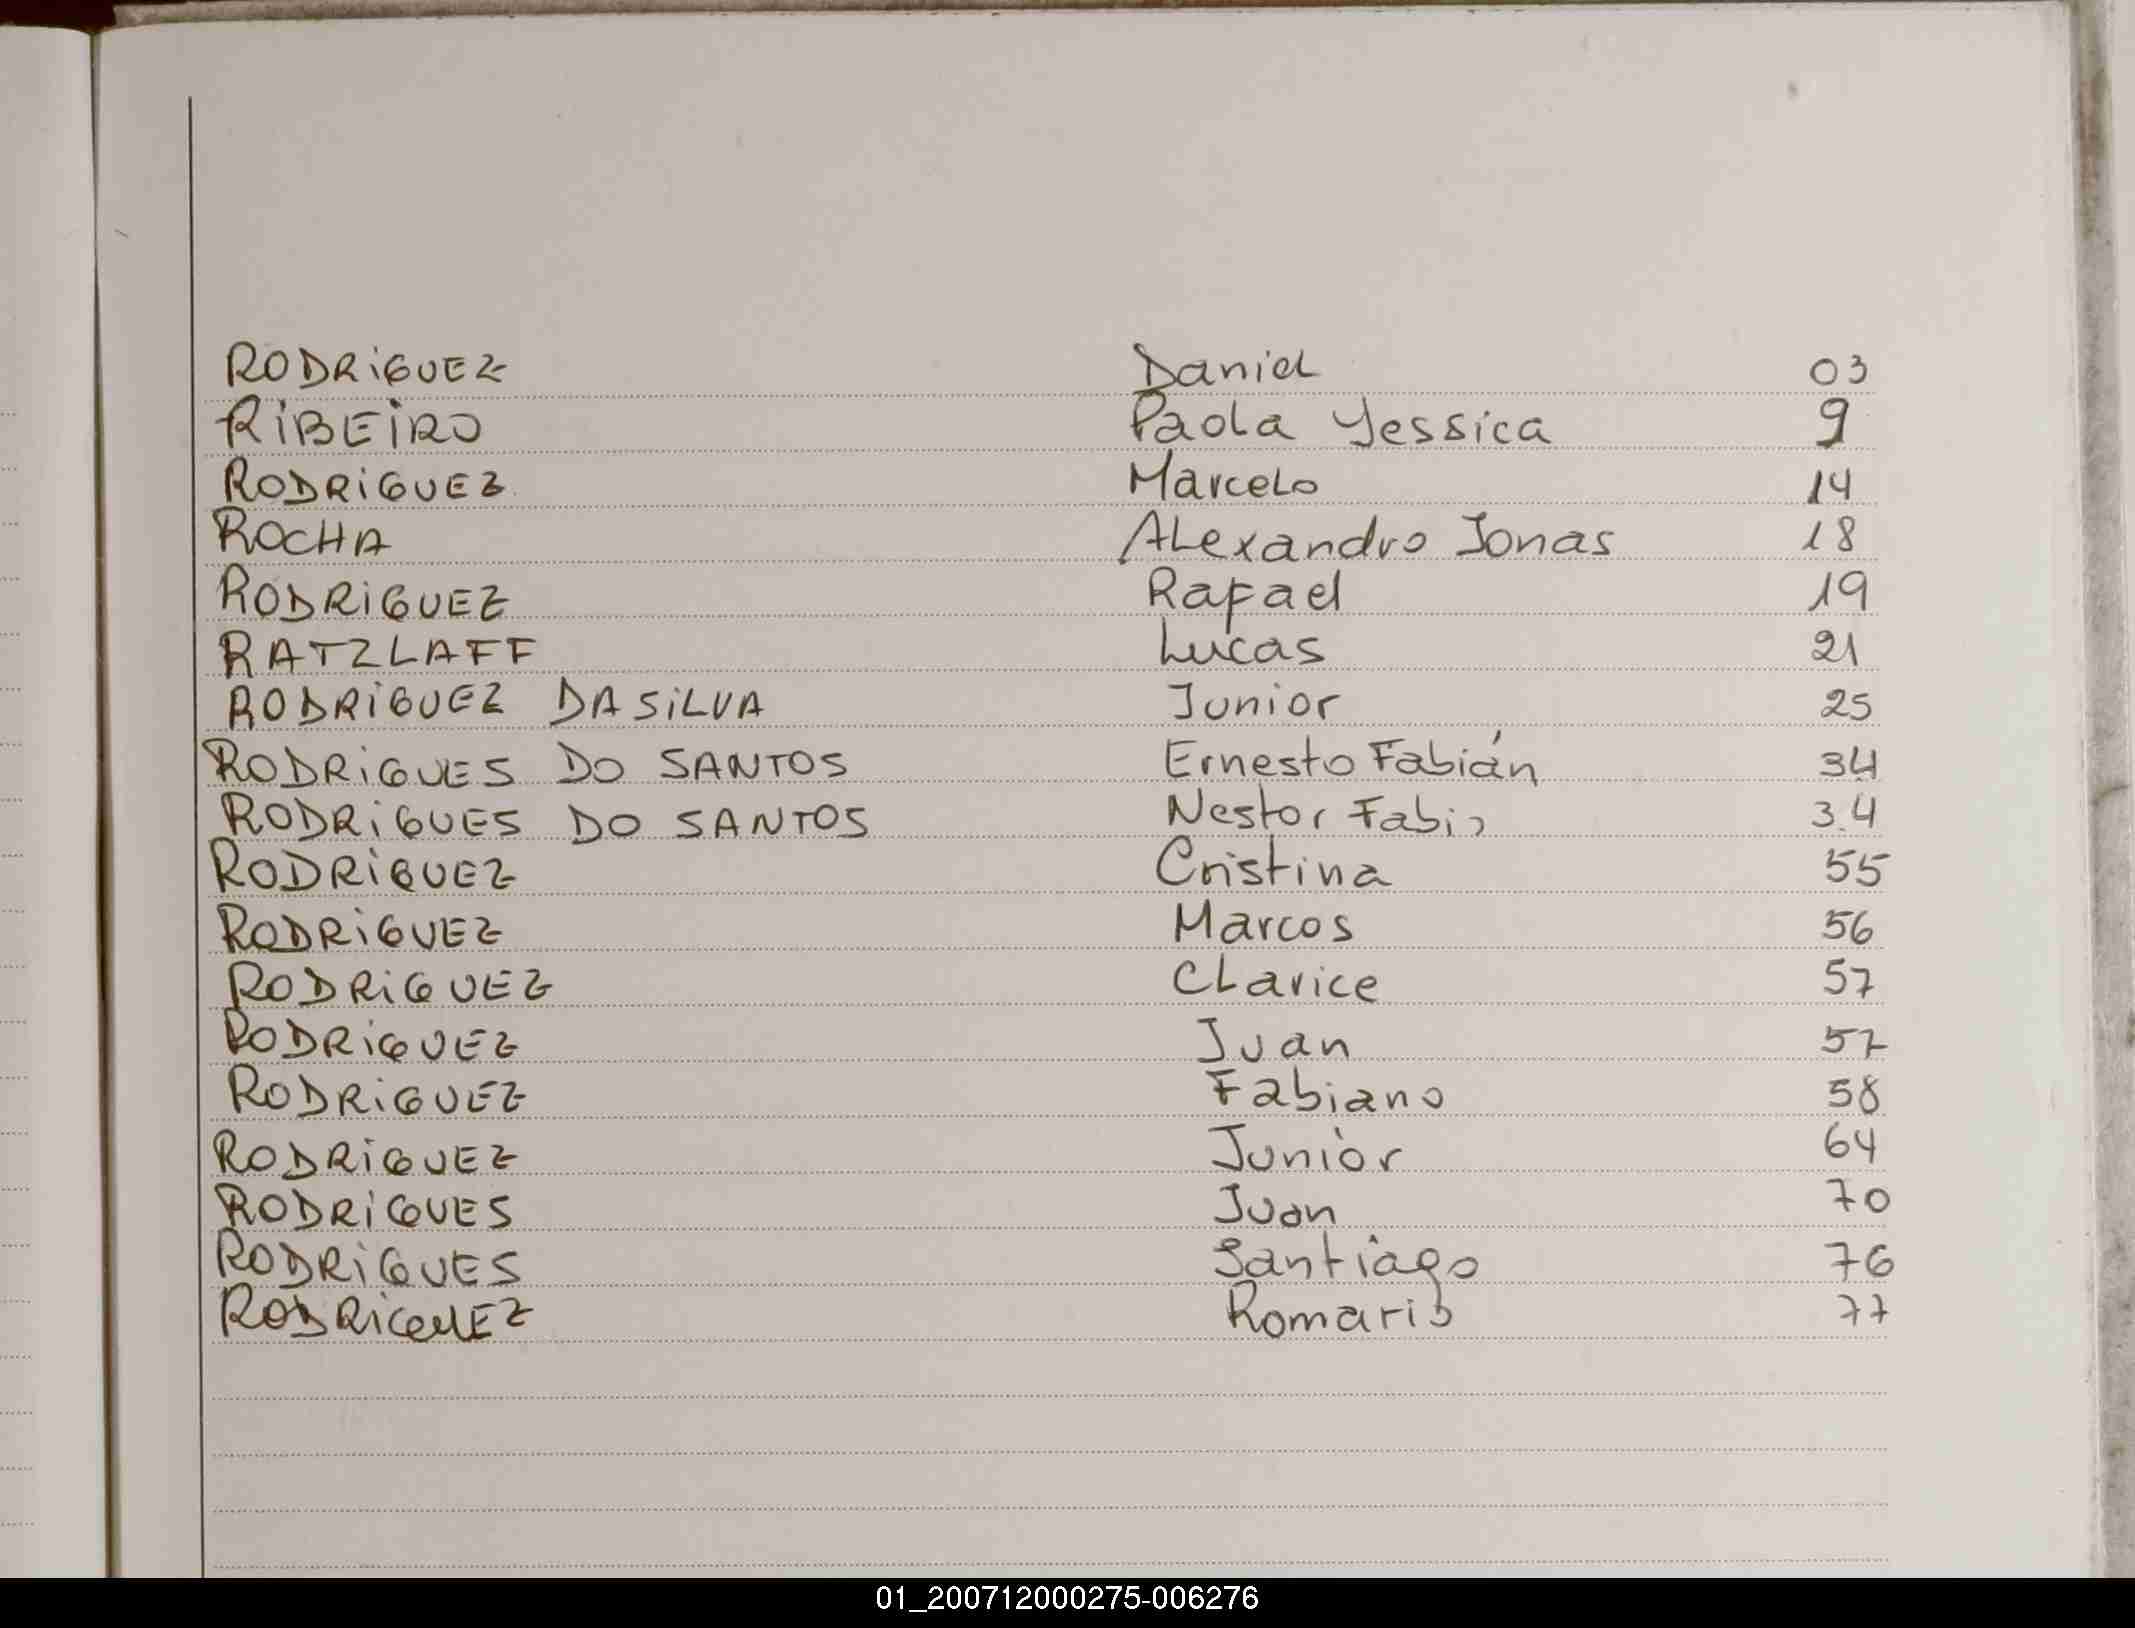 RODRIGUEZ Daniel 03
RIBEIRO Paola Yessica 9
RODRIGUEZ Marcelo 14
ROCHA Alexandro Jonas 18
RODRIGUEZ Rafael 19
RATZLAFF Lucas 21
RODRIGUEZ DA SILVA Junior 25
RODRIGUES DO SANTOS Ernesto Fabián 34
RODRIGUES DO SANTOS Nestor Fabio 34
RODRIGUEZ Cristina 55
RODRIGUEZ Marcos 56
RODRIGUEZ Clarice 57
RODRIGUEZ Juan 57
RODRIGUEZ Fabiano 58
RODRIGUEZ Junior 64
RODRIGUES Juan 70
RODRIGUES Santiago 76
RODRIGUEZ Romario 77
01_200712000275-006276